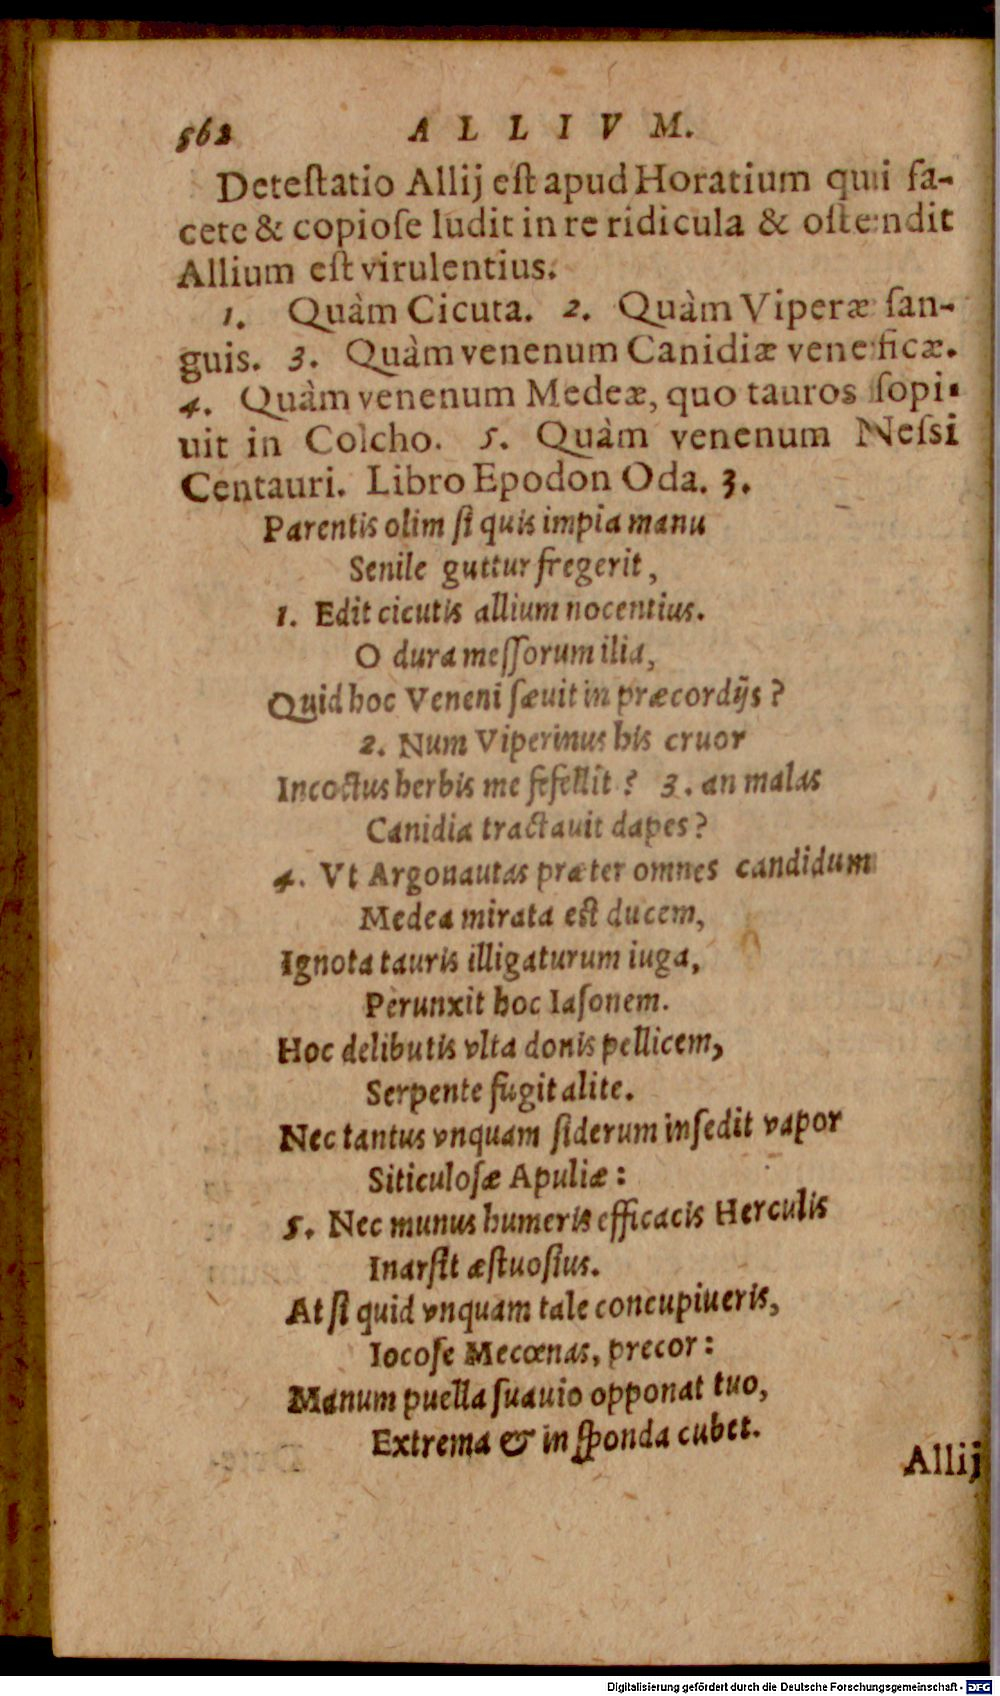 562 ALLIVM.
Detestatio Allij est apud Horatium qui fa-
cete & copiose ludit in re ridicula & ostendit
Allium est virulentius.
1. Quàm Cicuta. 2. Quàm Viperæ san-
guis. 3. Quàm venenum Canidiæ veneficæ.
4. Quàm venenum Medeæ, quo tauros sopi-
uit in Colcho. 5. Quàm venenum Nessi
Centauri. Libro Epodon Oda. 3.
Parentis olim si quis impia manu
Senile guttur fregerit,
1. Edit cicutis allium nocentius.
O dura messorum ilia,
Quid hoc Veneni sæuit in præcordijs?
2. Num Viperinus his cruor
Incoctus herbis me fefellit? 3. an malas
Canidia tractauit dapes?
4. Vt Argonautas præter omnes candidum
Medea mirata est ducem,
Ignota tauris illigaturum iuga,
Perunxit hoc Iasonem.
Hoc delibutis vlta donis pellicem,
Serpente fugit alite.
Nec tantus vnquam siderum insedit vapor
Siticulosæ Apuliæ:
5. Nec munus humeris efficacis Herculis
Inarsit æstuosius.
At si quid vnquam tale concupiueris,
Iocose Mecœnas, precor:
Manum puella suauio opponat tuo,
Extrema & in sponda cubet.
Allij
Digitalisierung gefördert durch die Deutsche Forschungsgemeinschaft - DFG